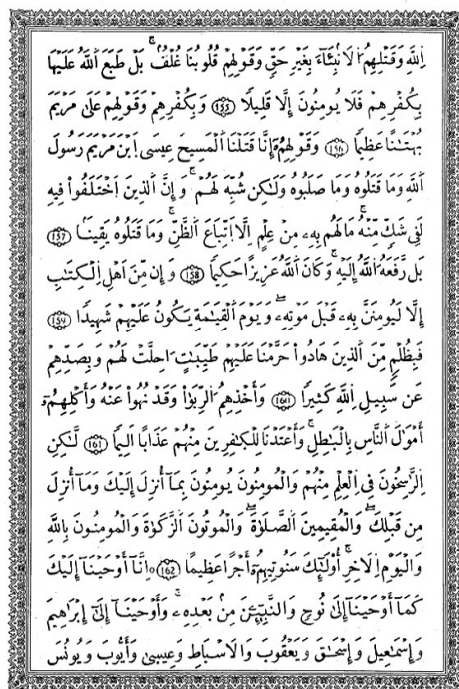 اِ۬للَّهِ وَقَتْلِهِمُ اُ۬لَانۢبِئَآءَ بِغَيْرِ حَقّٖ وَقَوْلِهِمْ قُلُوبُنَا غُلْفُۢ بَلْ طَبَعَ اَ۬للَّهُ عَلَيْهَا
بِكُفْرِهِمْ فَلَا يُومِنُونَ إِلَّا قَلِيلاٗ 155 وَبِكُفْرِهِمْ وَقَوْلِهِمْ عَلَىٰ مَرْيَمَ
بُهْتَٰناً عَظِيماٗ 156 وَقَوْلِهِمُۥٓ إِنَّا قَتَلْنَا اَ۬لْمَسِيحَ عِيسَى اَ۪بْنَ مَرْيَمَ رَسُولَ
اَ۬للَّهِ وَمَا قَتَلُوهُ وَمَا صَلَبُوهُ وَلَٰكِن شُبِّهَ لَهُمْ وَإِنَّ اَ۬لذِينَ اَ۪خْتَلَفُواْ فِيهِ
لَفِے شَكّٖ مِّنْهُ مَا لَهُم بِهِۦ مِنْ عِلْمٍ اِلَّا اَ۪تِّبَاعَ اَ۬لظَّنِّ وَمَا قَتَلُوهُ يَقِيناَۢ 157
بَل رَّفَعَهُ اُ۬للَّهُ إِلَيْهِ وَكَانَ اَ۬للَّهُ عَزِيزاً حَكِيماٗ 158 وَإِن مِّنَ اَهْلِ اِ۬لْكِتَٰبِ
إِلَّا لَيُومِنَنَّ بِهِۦ قَبْلَ مَوْتِهِۦ وَيَوْمَ اَ۬لْقِيَٰمَةِ يَكُونُ عَلَيْهِمْ شَهِيداٗ 159
فَبِظُلْمٖ مِّنَ اَ۬لذِينَ هَادُواْ حَرَّمْنَا عَلَيْهِمْ طَيِّبَٰتٍ اُحِلَّتْ لَهُمْ وَبِصَدِّهِمْ
عَن سَبِيلِ اِ۬للَّهِ كَثِيراٗ 160 وَأَخْذِهِمُ اُ۬لرِّبَوٰاْ وَقَدْ نُهُواْ عَنْهُ وَأَكْلِهِمُۥٓ
أَمْوَٰلَ اَ۬لنَّاسِ بِالْبَٰطِلِ وَأَعْتَدْنَا لِلْكٰ۪فِرِينَ مِنْهُمْ عَذَاباً اَلِيماٗ 161 لَّٰكِنِ
اِ۬لرَّٰسِخُونَ فِے اِ۬لْعِلْمِ مِنْهُمْ وَالْمُومِنُونَ يُومِنُونَ بِمَآ أُنزِلَ إِلَيْكَ وَمَآ أُنزِلَ
مِن قَبْلِكَ وَالْمُقِيمِينَ اَ۬لصَّلَوٰةَ وَالْمُوتُونَ اَ۬لزَّكَوٰةَ وَالْمُومِنُونَ بِاللَّهِ
وَالْيَوْمِ اِ۬لَاخِرِ أُوْلَٰٓئِكَ سَنُوتِيهِمُۥٓ أَجْراً عَظِيماً 162 اِنَّآ أَوْحَيْنَآ إِلَيْكَ
كَمَآ أَوْحَيْنَآ إِلَىٰ نُوحٖ وَالنَّبِيٓـِٕۧنَ مِنۢ بَعْدِهِۦ وَأَوْحَيْنَآ إِلَىٰٓ إِبْرَٰهِيمَ
وَإِسْمَٰعِيلَ وَإِسْحَٰقَ وَيَعْقُوبَ وَالَاسْبَاطِ وَعِيسَىٰ وَأَيُّوبَ وَيُونُسَ